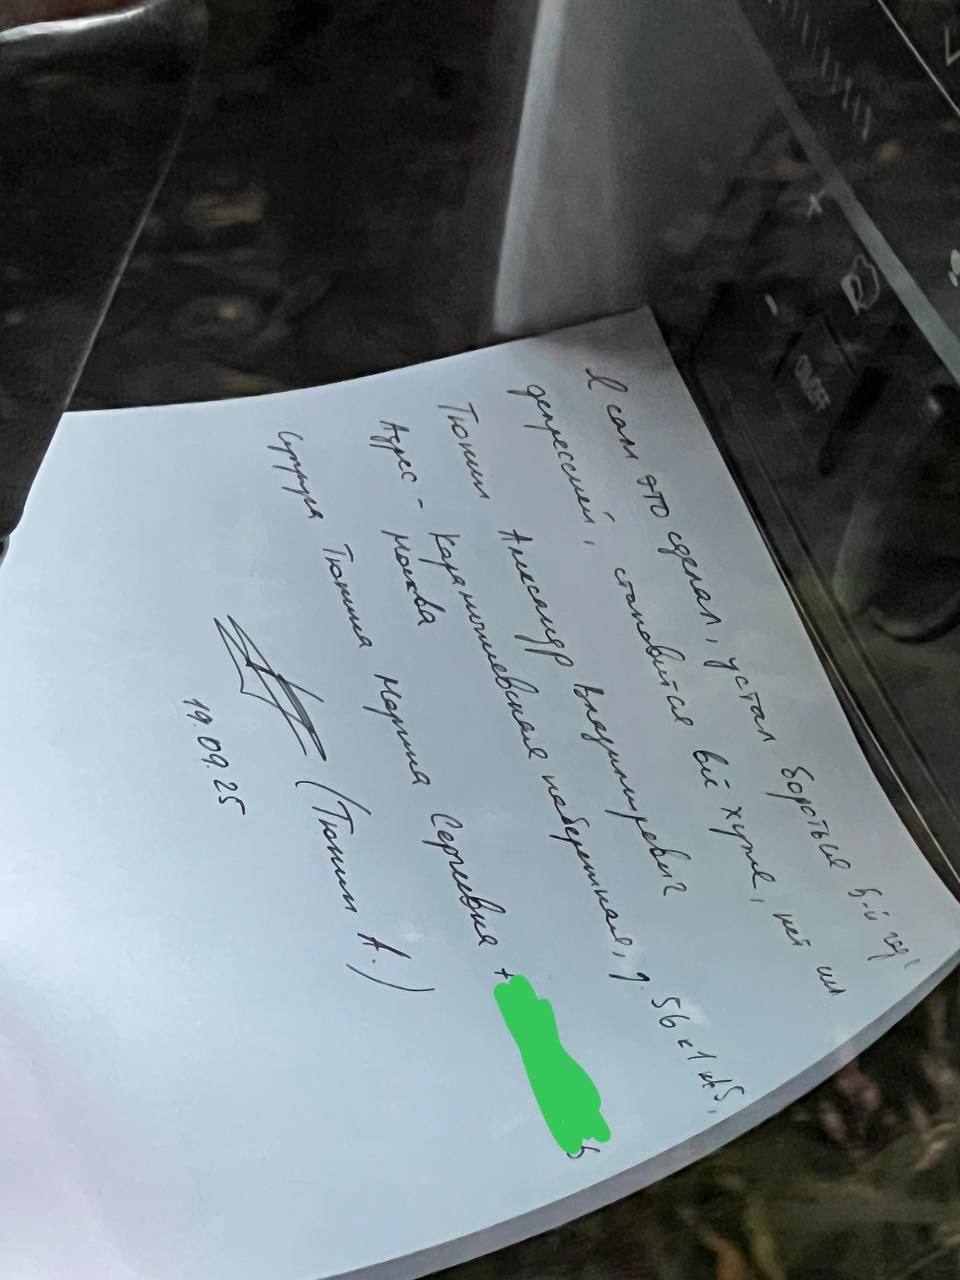 Я сам это сделал, устал бороться 5-й год с
депрессией, становится всё хуже, нет сил
Тюнин Александр Владимирович
Адрес - Карамышевская набережная, д. 56 к1 кв5,
Москва
Супруга Тюнина Марина Сергеевна +
(Тюнин А.)
19.09.25
ON/OFF